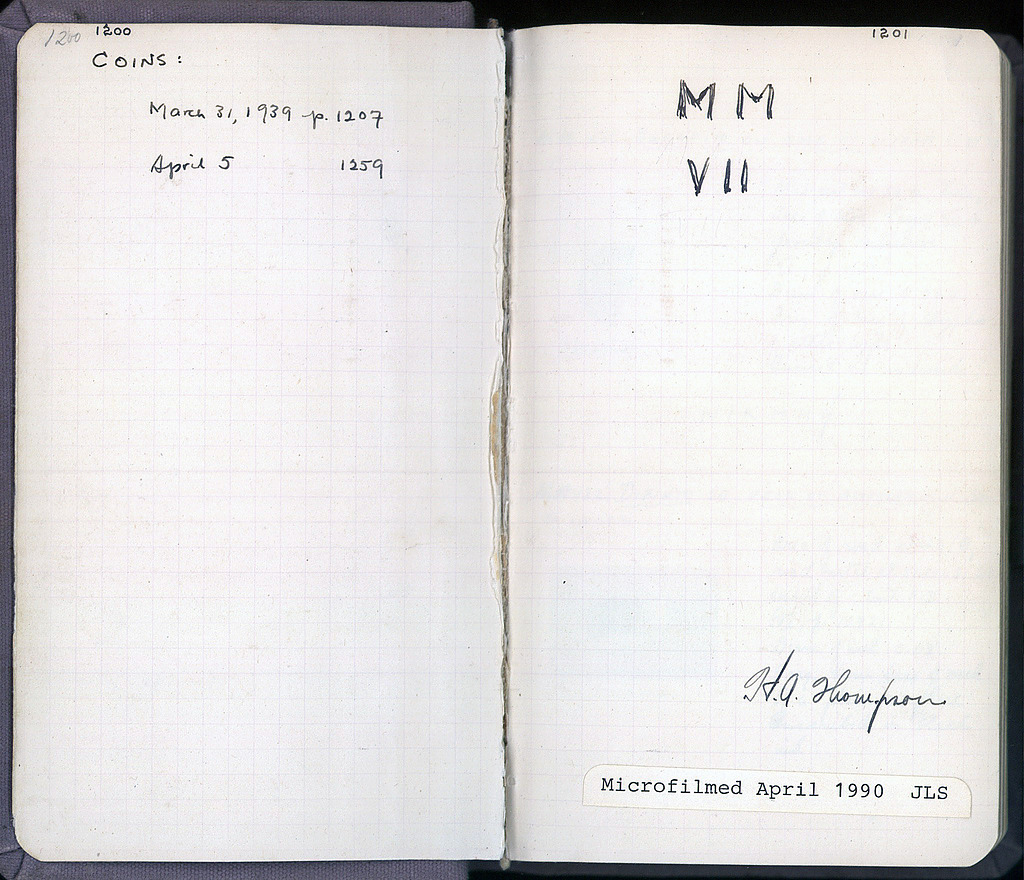 1200 1200
COINS:
March 31, 1939 p. 1207
April 5 1259
1201
MM
VII
H.A. Thompson
Microfilmed April 1990 JLS